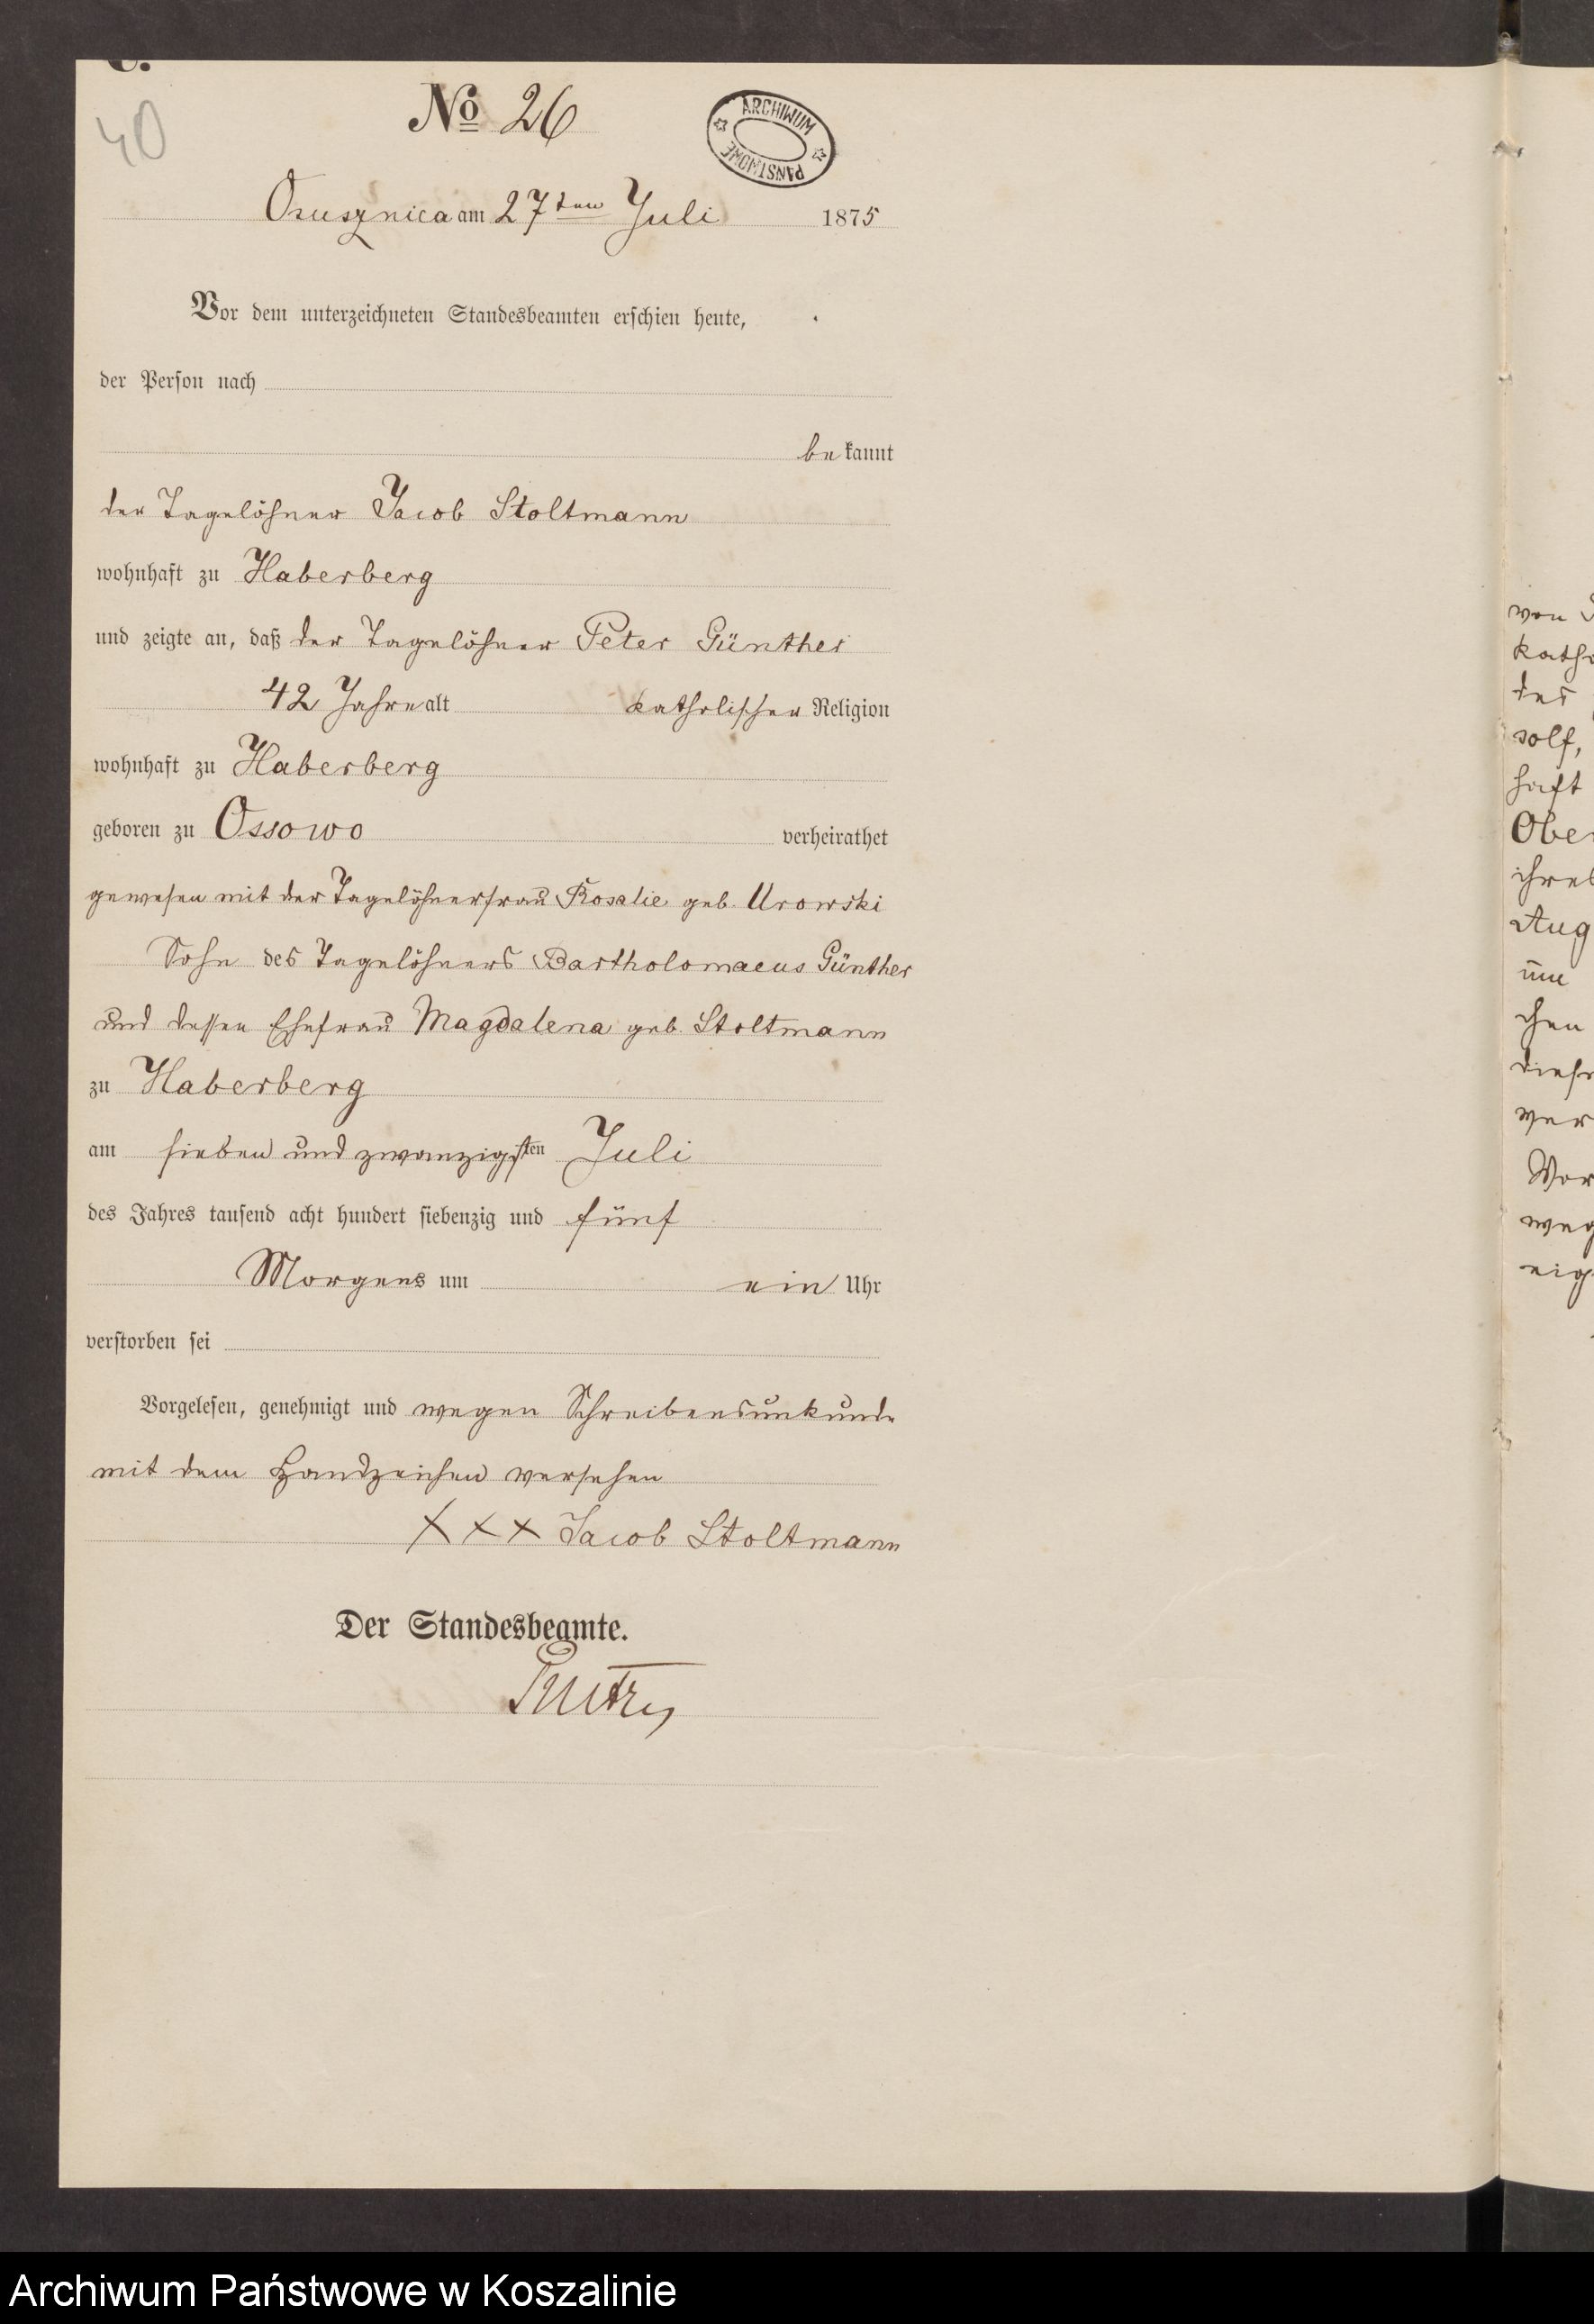 C.
40
No 26
ARCHIWUM PAŃSTWOWE
Osusznica am 27ten Juli 1875
Vor dem unterzeichneten Standesbeamten erschien heute,
der Person nach
bekannt
der Tagelöhner Jacob Stoltmann
wohnhaft zu Haberberg
und zeigte an, daß der Tagelöhner Peter Günther
42 Jahre alt katholischer Religion
wohnhaft zu Haberberg
geboren zu Ossowo verheirathet
gewesen mit der Tagelöhnerfrau Rosalie geb. Urowski
Sohn des Tagelöhners Bartholomaeus Günther
und dessen Ehefrau Magdalena geb. Stoltmann
zu Haberberg
am sieben und zwanzigsten Juli
des Jahres tausend acht hundert siebenzig und fünf
Morgens um ein Uhr
verstorben sei
Vorgelesen, genehmigt und wegen Schreibensunkunde
mit dem Handzeichen versehen
XXX Jacob Stoltmann
Der Standesbeamte.
von
kath
des
solf,
haft
Ober
ihre
Aug
chen
diese
ver
Vor
weg
eig
Archiwum Państwowe w Koszalinie